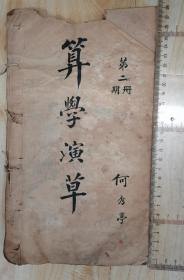 第二册
期
算學演草
何方亭